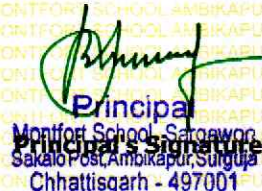 Principal
Montfort School, Sargawon
Principal's Signature
Sakalo Post, Ambikapur, Surguja
Chhattisgarh - 497001